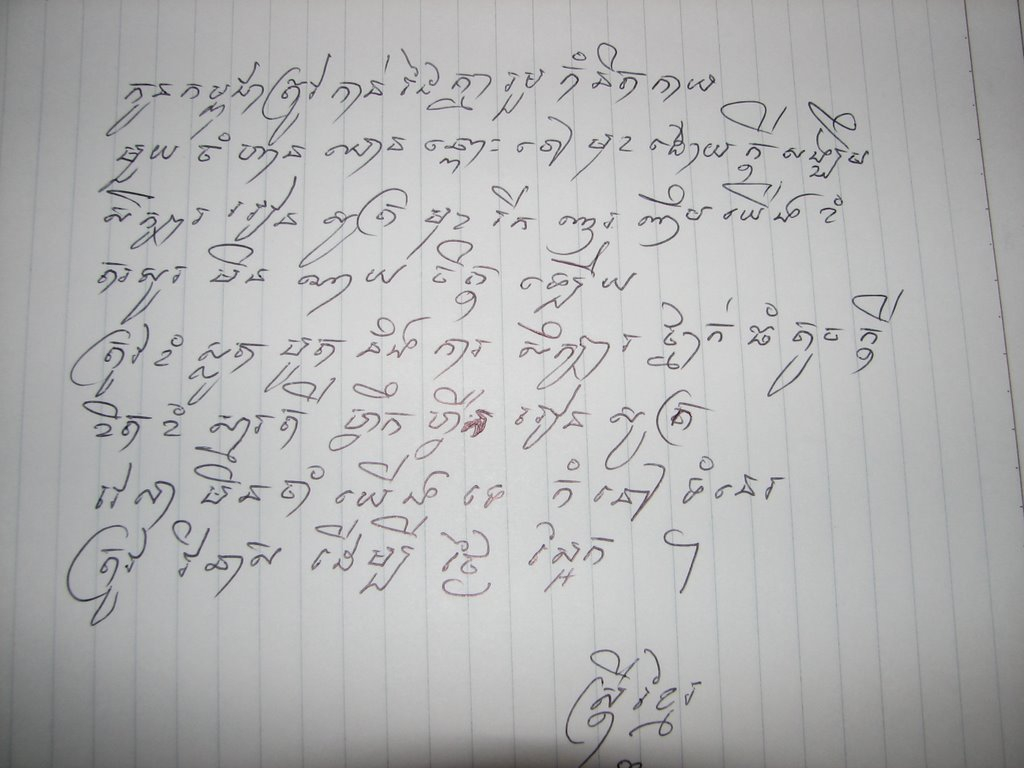 កូនកម្ពុជាត្រូវកាន់ដៃគ្នា រួប កំនិត កាយ
មួយ ចំហាន ឈាន ឆ្ពោះ ទៅ មុខ ដោយក្តី សង្ឃឹម
សិក្សា រៀន សូត្រ មុខ រីក ញញឹម យើង ខំ
តស៊ូ មិន ណាយ ចិត្ត ឡើយ
ត្រូវ ខំ ស្លូត បូត នឹង ការ សិក្សា ធ្លាក់ ធំ តូច ក្តី
ខិត ខំ ស្មារតី ហ្វឹក ហ្វឺន រៀន សូត្រ
វេលា មិនចាំ យើង ទេ កំ នៅ ទំនេរ
ត្រូវ រិះគិត ដើម្បី ថ្ងៃ ស្អែក ។
ស្រីខ្មែរ